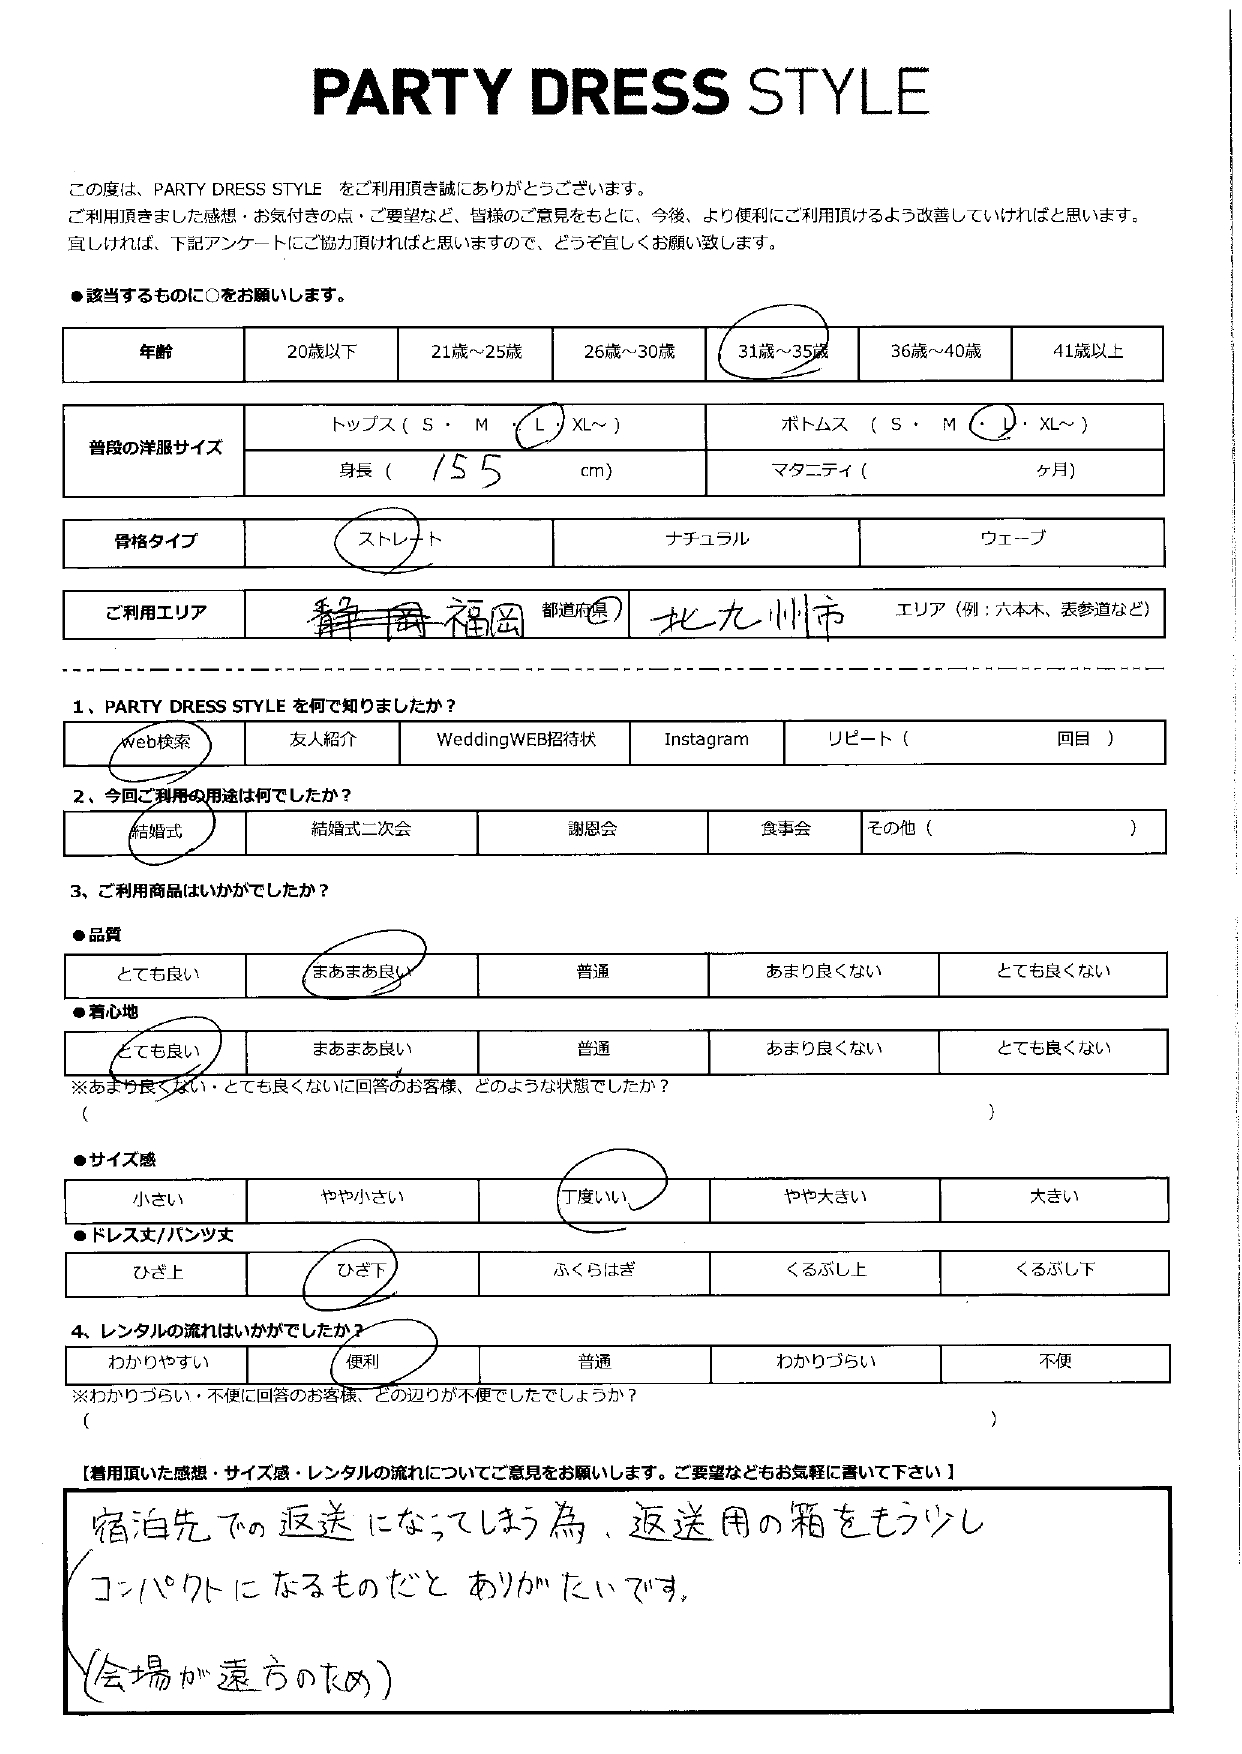 PARTY DRESS STYLE
この度は、PARTY DRESS STYLE をご利用頂き誠にありがとうございます。
ご利用頂きました感想・お気付きの点・ご要望など、皆様のご意見をもとに、今後、より便利にご利用頂けるよう改善していければと思います。
宜しければ、下記アンケートにご協力頂ければと思いますので、どうぞ宜しくお願い致します。
●該当するものに○をお願いします。
年齢 20歳以下 21歳～25歳 26歳～30歳 31歳～35歳 36歳～40歳 41歳以上
普段の洋服サイズ トップス ( S ・ M ・ L ・ XL～ ) ボトムス ( S ・ M ・ L ・ XL～ )
身長 ( 155 cm) マタニティ ( ヶ月)
骨格タイプ ストレート ナチュラル ウェーブ
ご利用エリア 静岡 福岡 都道府県 北九州市 エリア (例：六本木、表参道など)
1、PARTY DRESS STYLE を何で知りましたか？
Web検索 友人紹介 WeddingWEB招待状 Instagram リピート ( 回目 )
2、今回ご利用の用途は何でしたか？
結婚式 結婚式二次会 謝恩会 食事会 その他 ( )
3、ご利用商品はいかがでしたか？
●品質
とても良い まあまあ良い 普通 あまり良くない とても良くない
●着心地
とても良い まあまあ良い 普通 あまり良くない とても良くない
※あまり良くない・とても良くないに回答のお客様、どのような状態でしたか？
( )
●サイズ感
小さい やや小さい 丁度いい やや大きい 大きい
●ドレス丈/パンツ丈
ひざ上 ひざ下 ふくらはぎ くるぶし上 くるぶし下
4、レンタルの流れはいかがでしたか？
わかりやすい 便利 普通 わかりづらい 不便
※わかりづらい・不便に回答のお客様、どの辺りが不便でしたでしょうか？
( )
【着用頂いた感想・サイズ感・レンタルの流れについてご意見をお願いします。ご要望などもお気軽に書いて下さい】
宿泊先での返送になってしまう為、返送用の箱をもう少し
コンパクトになるものだとありがたいです。
(会場が遠方のため)